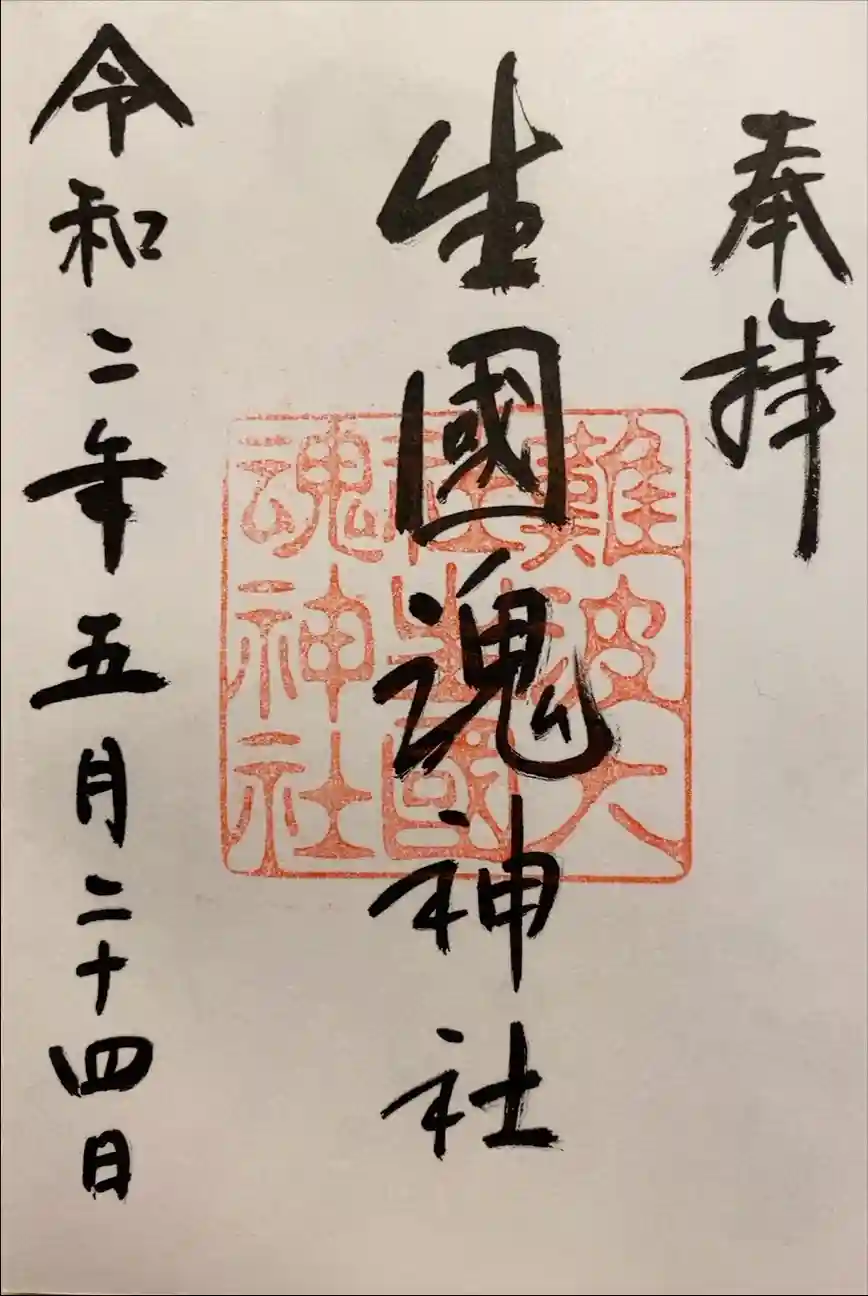 奉拝
難波大
社生國
魂神社
生國魂神社
令和二年五月二十四日